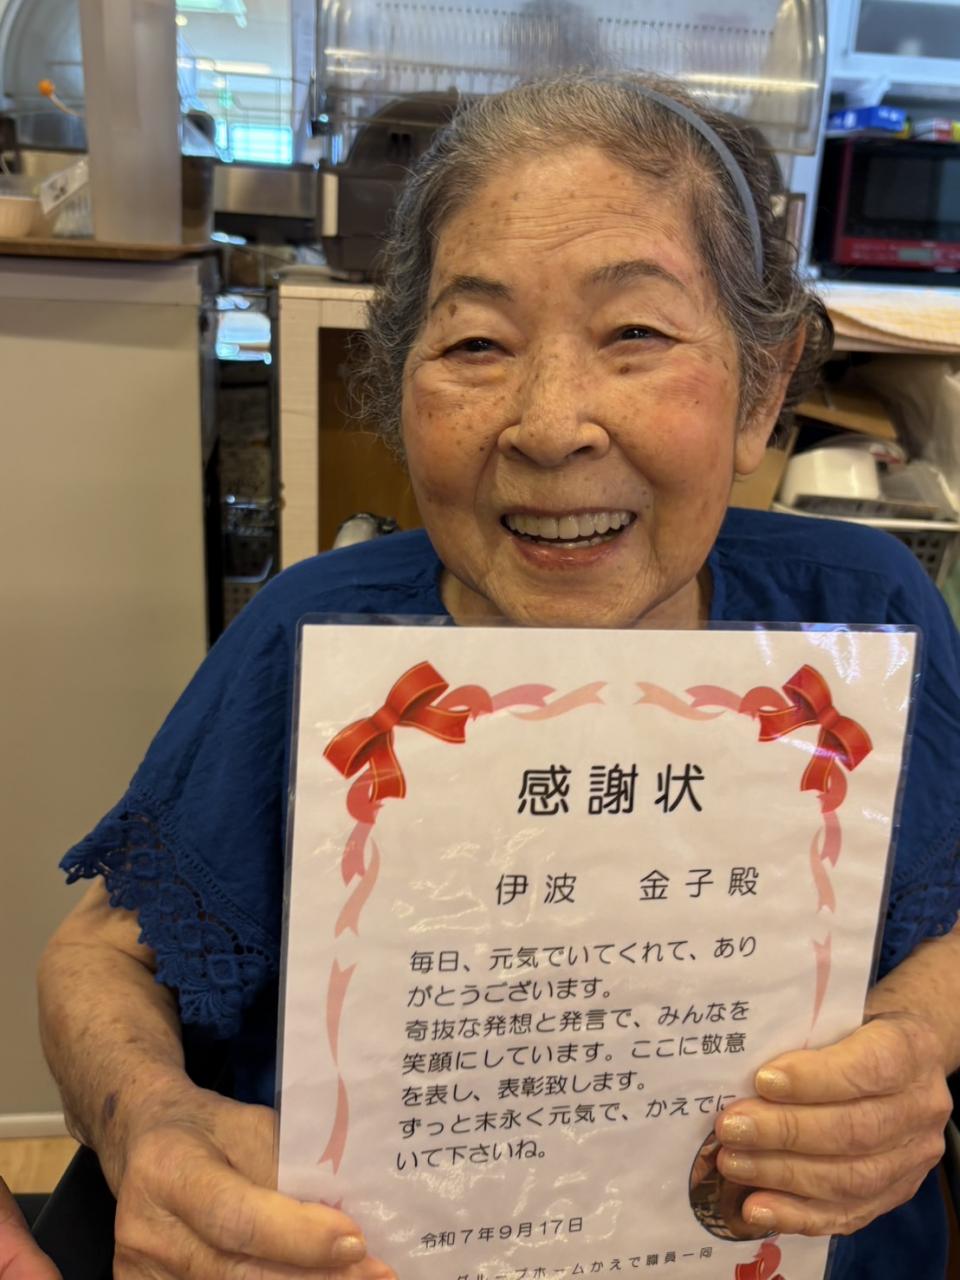 感謝状
伊波 金子殿
毎日、元気でいてくれて、あり
がとうございます。
奇抜な発想と発言で、みんなを
笑顔にしています。ここに敬意
を表し、表彰致します。
ずっと末永く元気で、かえでに
いて下さいね。
令和7年9月17日
グループホームかえで職員一同